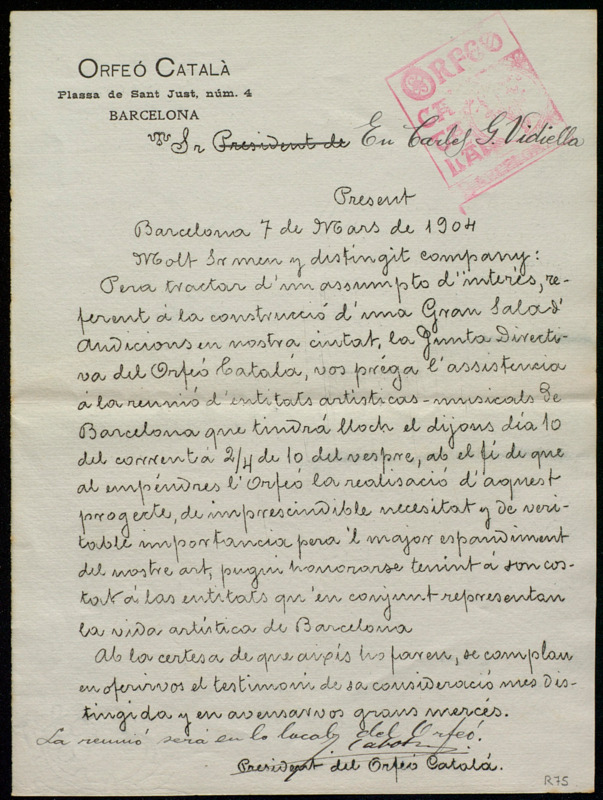 ORFEÓ CATALÀ
Plassa de Sant Just, núm. 4
BARCELONA
ORFEÓ
CA
TA
LÁ
BARCELONA
Sr President de En Carles G. Vidiella
Present
Barcelona 7 de Mars de 1904
Molt Sr meu y distingit company:
Pera tractar d'un assumpto d'interés, re-
ferent á la construcció d'una Gran Sala d'
Audicions en nostra ciutat, la Junta Directi-
va del Orfeó Catalá, vos préga l'assistencia
á la reunió d'entitats artísticas-musicals de
Barcelona que tindrá lloch el dijous día 10
del corrent á 2/4 de 10 del vespre, ab el fí de que
al empéndres l'Orfeó la realisació d'aquest
progecte, de imprescindible necesitat y de veri-
table importancia pera 'l major espandiment
del nostre art, pugui honorarse tenint á son cos-
tat á las entitats qu'en conjunt representan
la vida artística de Barcelona
Ab la certesa de que aixís ho faren, se complau
en oferirvos el testimoni de sa consideració mes dis-
tingida y en avensarvos grans mercés.
La reunió será en lo local del Orfeó.
President del Orfeó Catalá.
R75